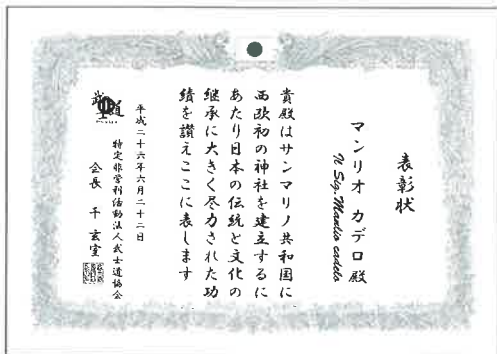 表彰状
マンリオ カデロ殿
Il Sig. Manlio cadelo
貴殿はサンマリノ共和国に
西欧初の神社を建立するに
あたり日本の伝統と文化の
継承に大きく尽力された功
績を讃えここに表します
平成二十六年六月二十二日
武士道
特定非営利活動法人武士道協会
会長 千玄室